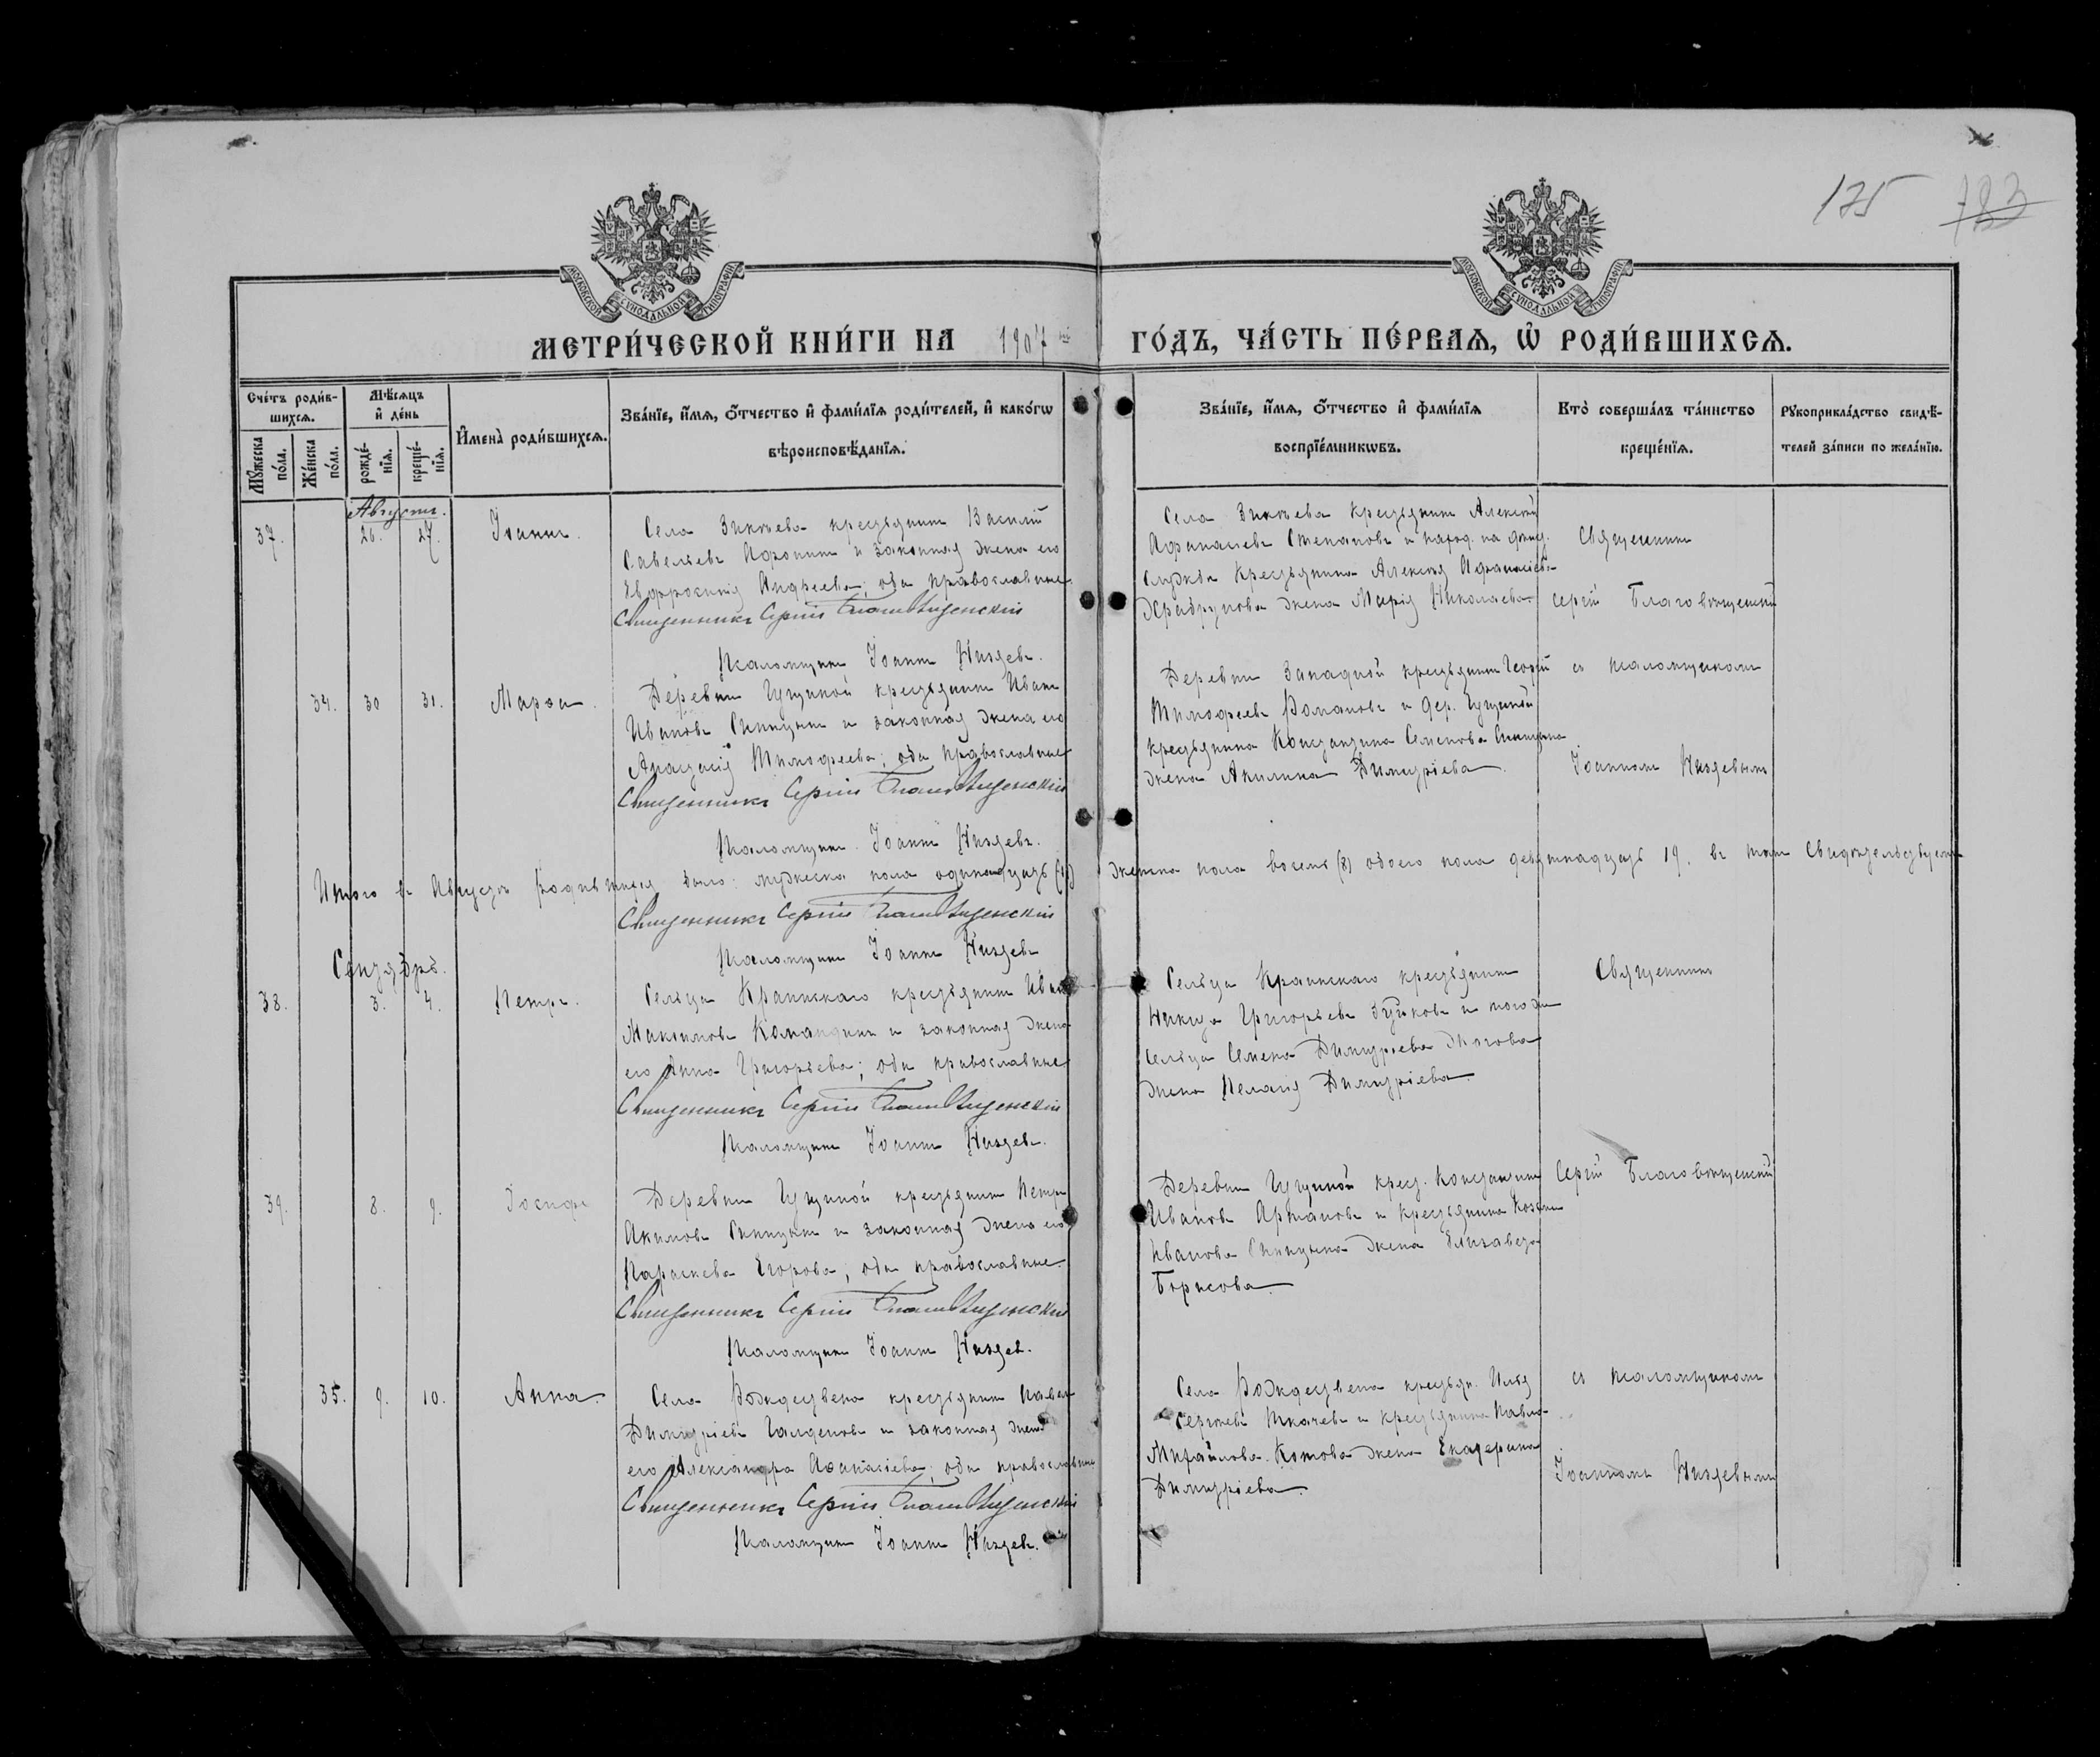 175 783
МОСКОВСКОЙ СѴНОДАЛЬНОЙ ТИПОГРАФІИ
МОСКОВСКОЙ СѴНОДАЛЬНОЙ ТИПОГРАФІИ
МЕТРИ́ЧЕСКОЙ КНИ́ГИ НА 1907 ГО́ДЪ, ЧА́СТЬ ПЕ́РВАѦ, Ѡ҆ РОДИ́ВШИХСѦ.
Сче́тъ роди́в-
шихсѧ.
Мѣ́сѧцъ
и҆ де́нь
Мꙋ́жеска
по́ла.
Же́нска
по́ла.
рожде́-
нїѧ.
креще́-
нїѧ.
И҆мена̀ роди́вшихсѧ.
Зва́нїе, и҆́мѧ, ѻ҆́тчество и҆ фами́лїѧ роди́телей, и҆ како́гѡ
вѣроисповѣ́данїѧ.
Зва́нїе, и҆́мѧ, ѻ҆́тчество и҆ фами́лїѧ
воспрїе́мникѡвъ.
Кто̀ соверша́лъ та́инство
креще́нїѧ.
Рꙋкоприкла́дство свидѣ́-
телей за́писи по жела́нїю.
Августъ.
37. 26. 27. Іоаннъ.
Села Зикѣева крестьянинъ Василій
Савельевъ Афонинъ и законная жена его
Евфросинія Андреева; оба православные.
Священникъ Сергій Благовѣщенскій
Псаломщикъ Іоаннъ Няздевъ.
Села Зикѣева крестьянинъ Алексѣй
Афанасіевъ Степановъ и
крестьянина Алексѣя Афанасіева
жена Марія Николаева
Священникъ
Сергій Благовѣщенскій
34. 30 31. Марѳа.
Деревни крестьянинъ Иванъ
Ивановъ Синицынъ и законная жена его
Анастасія Тимофеева; оба православные
Священникъ Сергій Благовѣщенскій
Псаломщикъ Іоаннъ Няздевъ.
Деревни Западной крестьянинъ Георгій
Тимофеевъ Романовъ и дер.
крестьянина Константина Семенова Синицына
жена Акилина Димитріева.
съ псаломщикомъ
Іоанномъ Няздевымъ
Итого въ Августѣ родившихся было: мужеска пола одинадцать (11) женска пола восемь (8) обоего пола девятнадцать 19. въ томъ свидѣтельствуемъ
Священникъ Сергій Благовѣщенскій
Псаломщикъ Іоаннъ Няздевъ
Сентябрь.
38. 3. 4. Петръ.
Сельца крестьянинъ Иванъ
Максимовъ Командинъ и законная жена
его Анна Григорьева; оба православные
Священникъ Сергій Благовѣщенскій
Псаломщикъ Іоаннъ Няздевъ.
Сельца крестьянинъ
Никита Григорьевъ Зуйковъ и того же
сельца Семена Димитріева
жена Пелагія Димитріева.
Священникъ
39. 8. 9. Іосифъ
Деревни крестьянинъ Петръ
Акимовъ Синицынъ и законная жена его
Параскева Егорова; оба православные.
Священникъ Сергій Благовѣщенскій
Псаломщикъ Іоаннъ Няздевъ.
Деревни крест. Константинъ
Ивановъ Артамовъ и крестьянина Козьмы
Иванова Синицына жена Елизавета
Борисова.
Сергій Благовѣщенскій
35. 9. 10. Анна.
Села Рождествена крестьянинъ Павелъ
Димитріевъ и законная жена
его Александра Аѳанасіева; оба православные
Священникъ Сергій Благовѣщенскій
Псаломщикъ Іоаннъ Няздевъ.
Села Рождествена крестьян. Илья
Сергѣевъ Ткачевъ и крестьянина Павла
Михайлова Котова жена Екатерина
Димитріева.
съ псаломщикомъ
Іоанномъ Няздевымъ